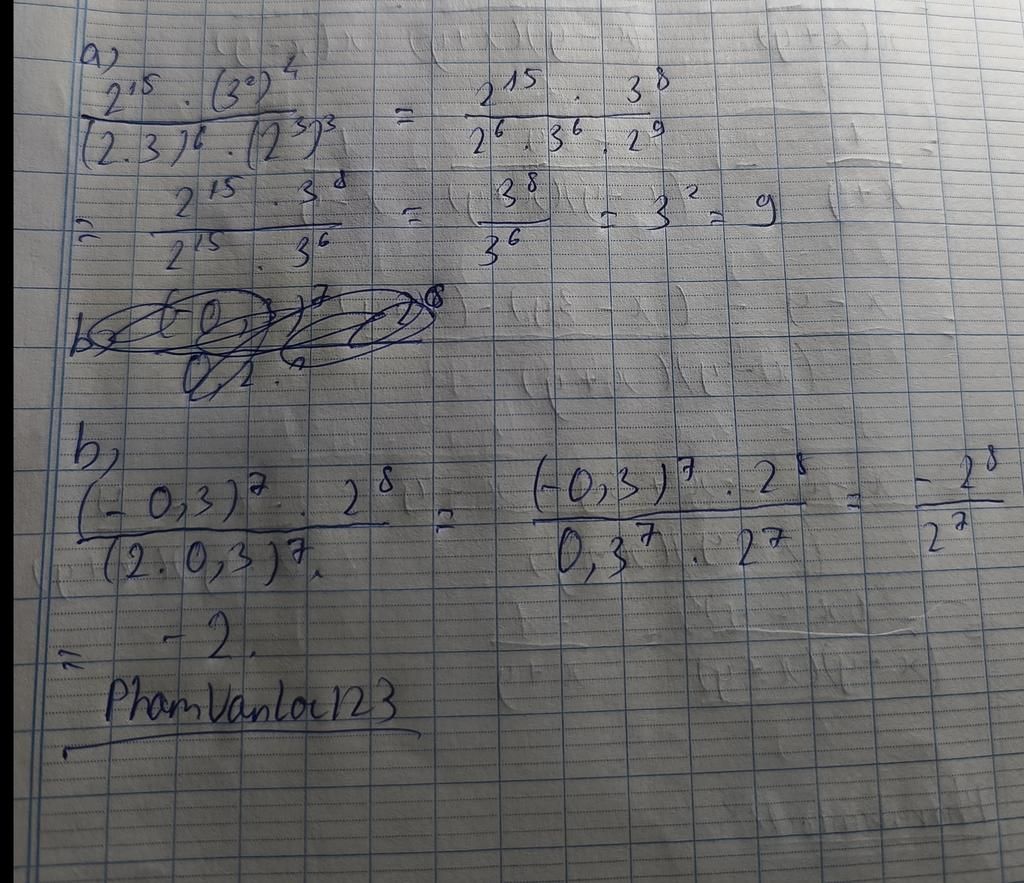 a,
2¹⁵ . (3²)⁴ / (2.3)⁶ . (2³)³ = 2¹⁵ . 3⁸ / 2⁶ . 3⁶ . 2⁹
= 2¹⁵ . 3⁸ / 2¹⁵ . 3⁶ = 3⁸ / 3⁶ = 3² = 9
b,
(-0,3)⁷ . 2⁸ / (2.0,3)⁷. = (-0,3)⁷ . 2⁸ / 0,3⁷ . 2⁷ = -2⁸ / 2⁷
= -2.
PhamVanLoc123